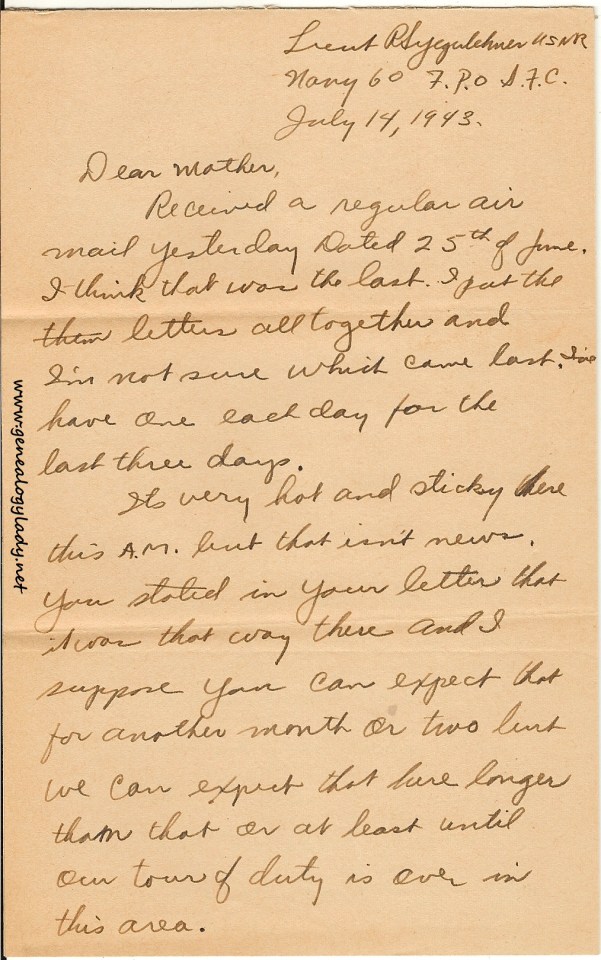 Lieut R S Yegerlehner USNR
Navy 60 F.P.O S.F.C.
July 14, 1943.
Dear Mother,
Received a regular air
mail yesterday Dated 25th of June.
I think that was the last. I put the
them letters all together and
I'm not sure which came last. I've
have one each day for the
last three days.
Its very hot and sticky here
this A.M. but that isn't news.
You stated in your letter that
it was that way there and I
suppose you can expect that
for another month or two but
we can expect that here longer
than that or at least until
our tour of duty is over in
this area.
www.genealogylady.net